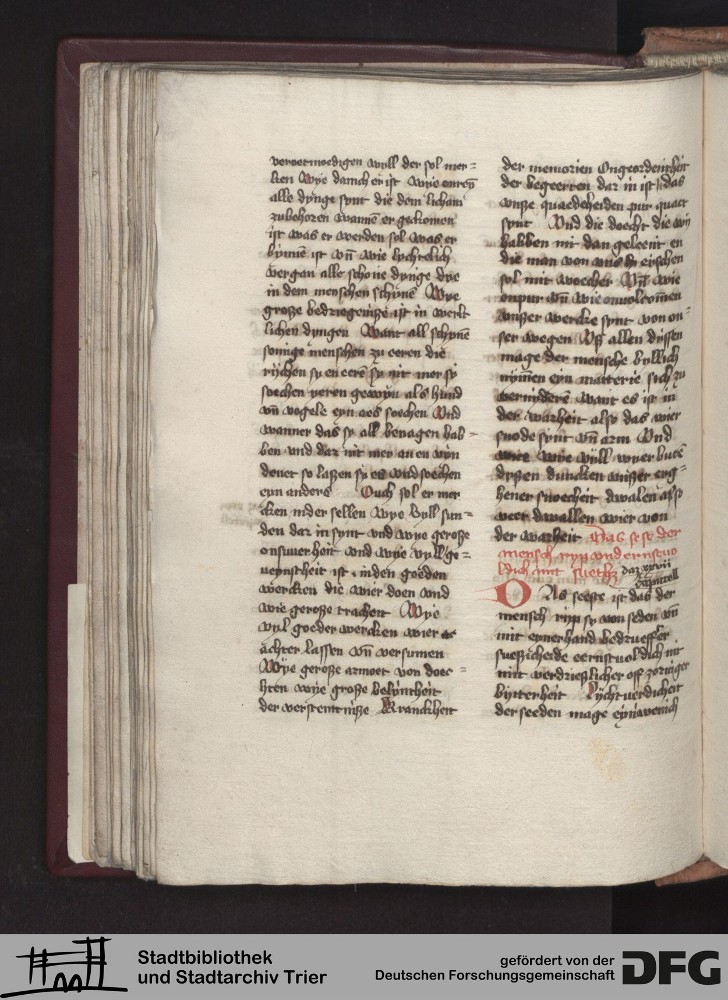 veroetmoedigen wyll der sol mer=
ken Wye danich er ist Wye
alle dynge synt die dem licham
zubehoren wanne er gekomen
ist was er werden sol was er
bynne ist vn wie lychtelich
vergan alle schone dynge dye
in dem menschen schyne Wye
große bedriegeniße ist in werlt
lichen dyngen Want all schyne
somige menschen zu eeren die
rijchen sy en eere sy nit mer sy
soechen yeren gewyn als hund
vn vogele eyn aes soechen Vnd
wanner das sy all benagen hab
ben vnd daz nit mer an en wyn
douet so laßen sy es vnd soechen
eyn anders Ouch sol er mer
cken in der sellen wye vyll sun=
den dar in synt vnd wye große
onsuuerheit vnd wye vyll ge=
ueynstheit ist in den goeden
wercken die wier doen vnd
wie große tracheit Wye
vyl goeder wercken wier
achter lassen vn versumen
Wye große armoet von doec=
hten wye große bekyntheit
der verstentniße Kranckheit
der memorien Ongeordentheit
der begeerten dar in ist das
vnße quaedeheiden pur quaet
synt Vnd die doecht die wy
habben mit dan geleent en
die man von vns eyschen
sol mit woecher Vn wie
onpur vn wie onuolkomen
vnßer wercke synt von on=
ser wegen Vß allen dyssen
mage der mensche byllich
nymen eyn matterie sich zu
vernyderen want es ist in
der warheit also das wier
snode synt vn arm Vnd
wye wyll wyer buce
dyßen duncken vnßer eyg=
hener snoecheit dwalen also
veer dwallen wier von
der warheit Das sest der
mensch ryp vnd ernstuo
ldich mit suethz daz xxvii
capittell
Das seeste ist das der
mensch rijp sy von seden vn
mit eynerhand bedrueffter
sueßicheide eernstuoldich nit
mit verdrießlicher off zorniger
bytterheit Lychtuerdicheit
der seeden mage eyn
Stadtbibliothek
und Stadtarchiv Trier
gefördert von der
Deutschen Forschungsgemeinschaft
DFG